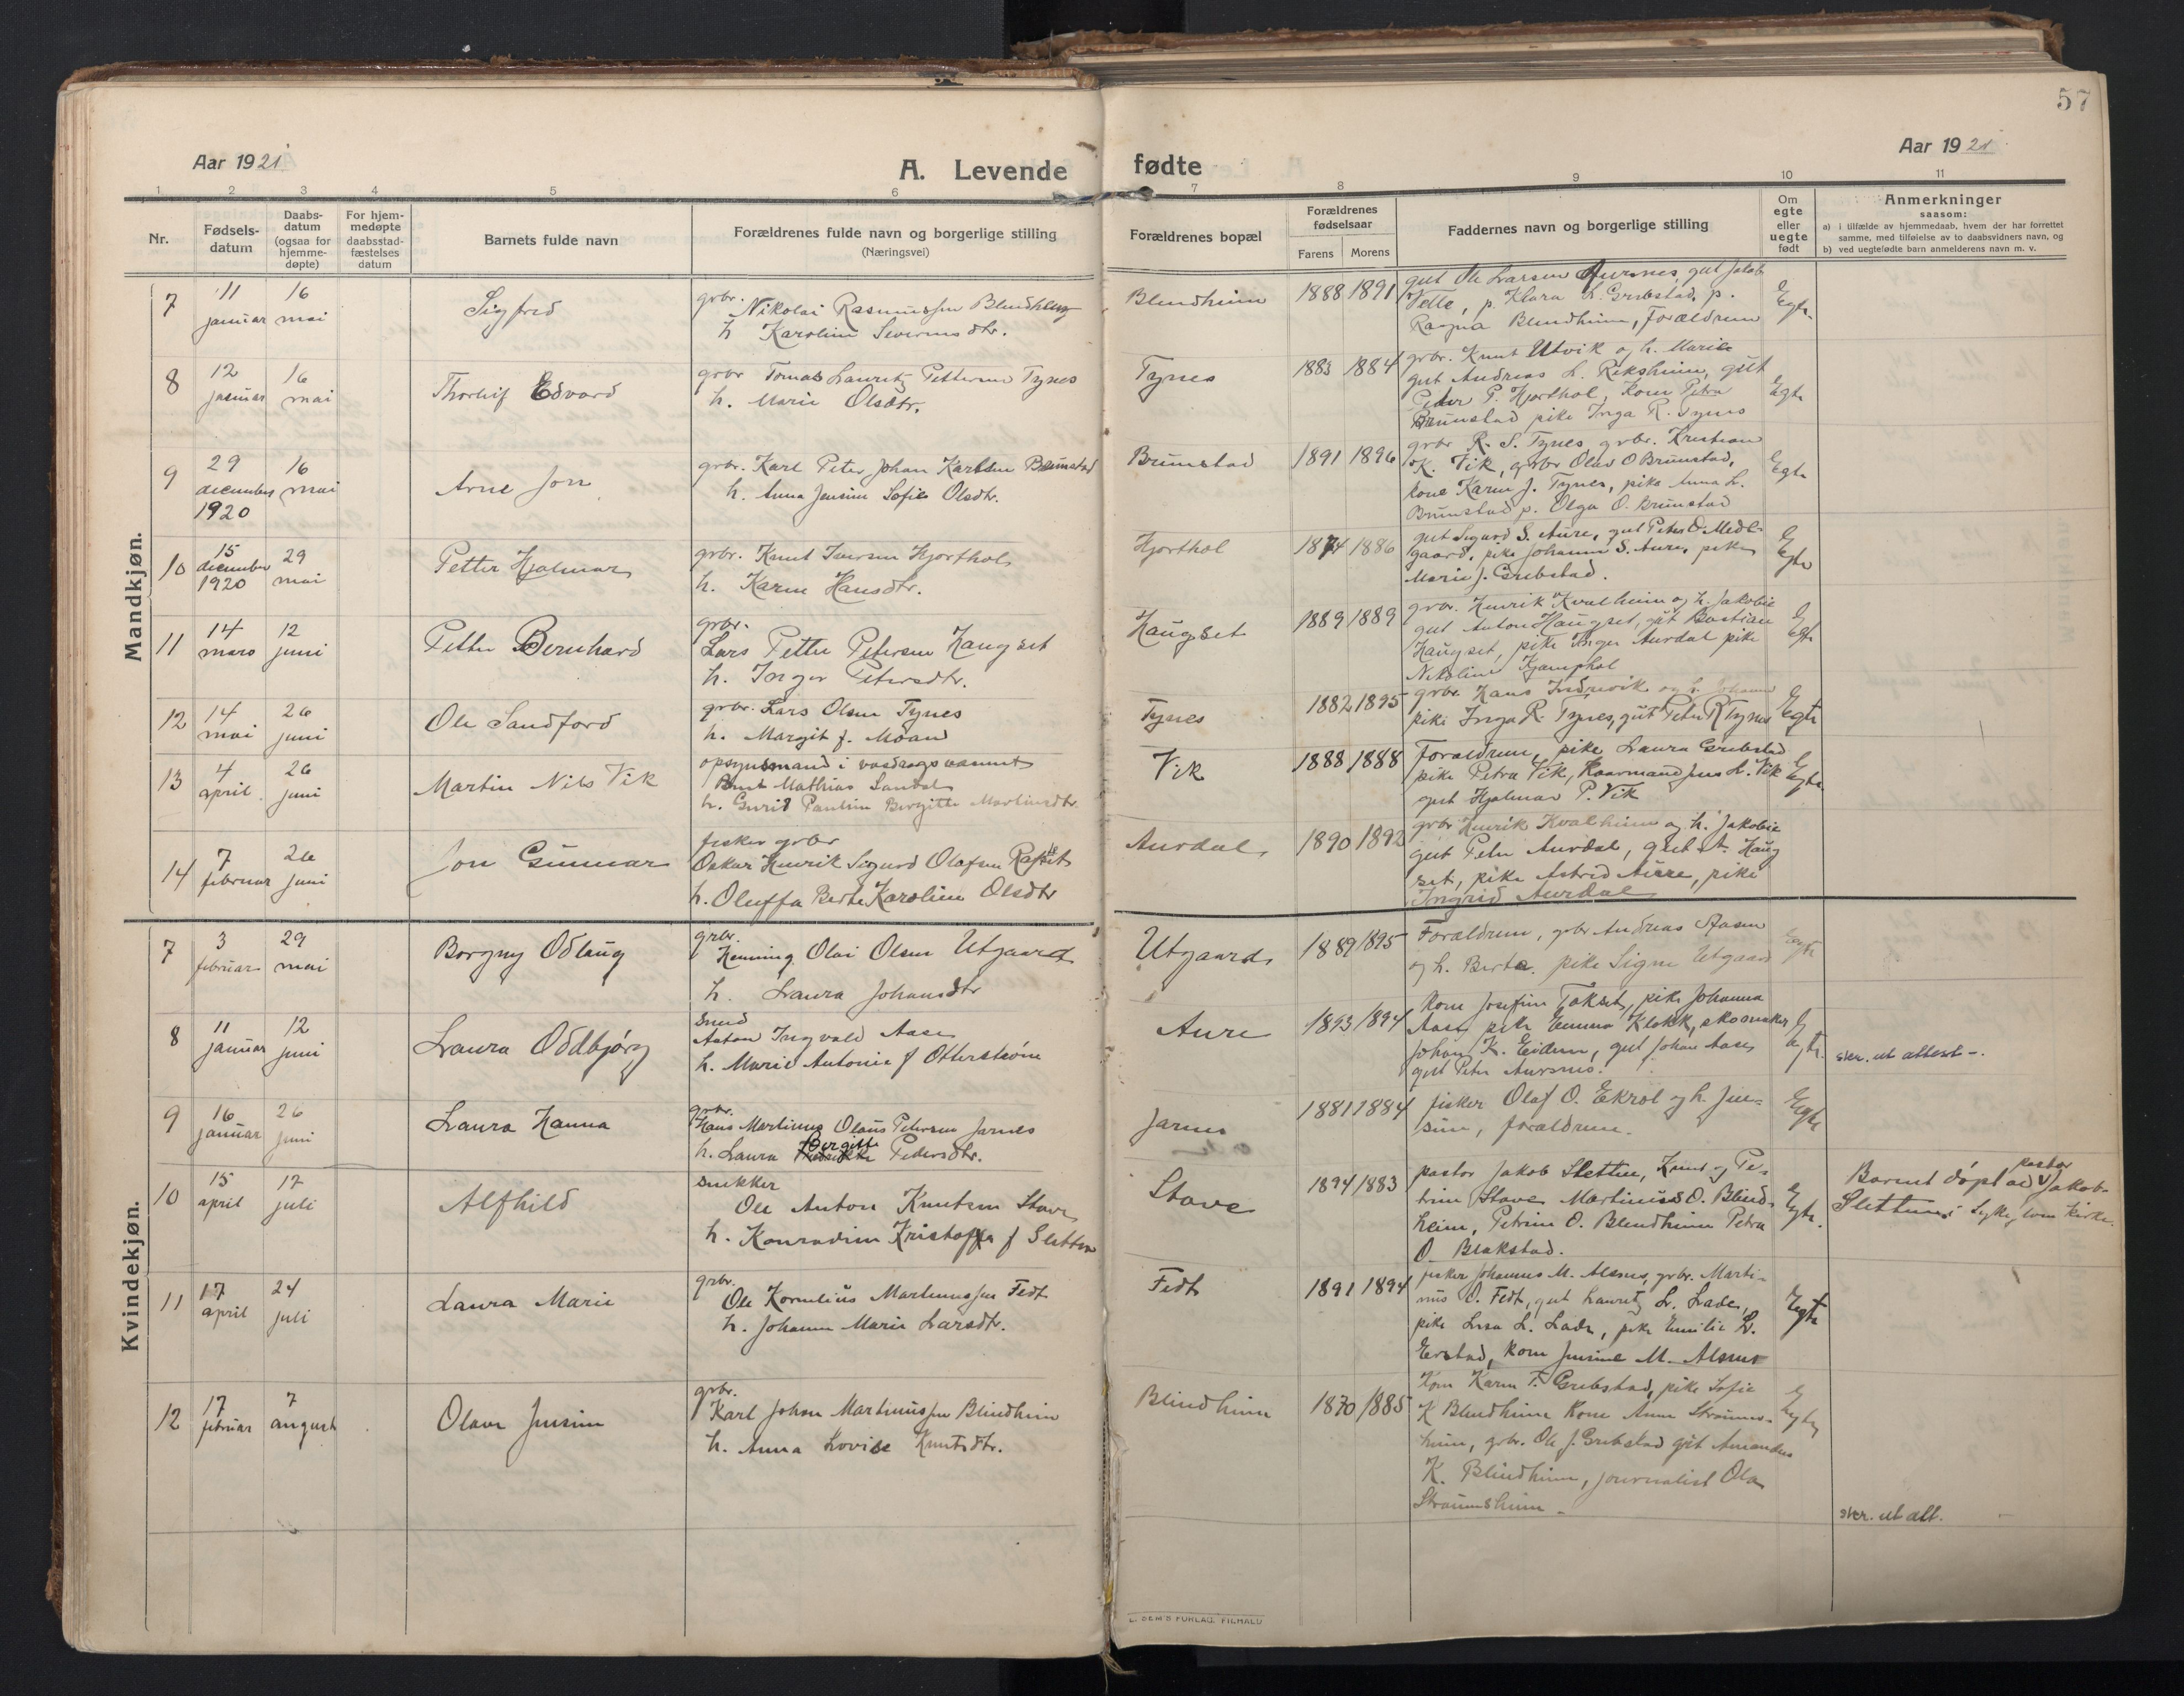 57
Aar 1921
A. Levende
fødte
Aar 1921
1 2 3 4 5 6 7 8 9 10 11
Nr.
Fødsels-
datum
Daabs-
datum
(ogsaa for
hjemme-
døpte)
For hjem-
medøpte
daabsstad-
fæstelses
datum
Barnets fulde navn
Forældrenes fulde navn og borgerlige stilling
(Næringsvei)
Forældrenes bopæl
Forældrenes
fødselsaar
Farens Morens
Faddernes navn og borgerlige stilling
Om
egte
eller
uegte
født
Anmerkninger
saasom:
a) i tilfælde av hjemmedaab, hvem der har forrettet
samme, med tilføielse av to daabsvidners navn, og
b) ved uegtefødte barn anmelderens navn m. v.
Mandkjøn.
7 11 januar 16 mai Sigfred
grbr. Nikolai Rasmussen Blindheim
h Karoline Severinsdtr.
Blindheim 1888 1891
gut Ole Larsen Aursnes, gut Jakob
Velle, p. Klara L. Grebstad, p.
Ragna Blindheim, Forældrene
Egte
8 12 januar 16 mai Thorleif Edvard
grbr Tomas Lauritz Pettersen Tynes
h. Marie Olsdtr.
Tynes 1883 1884
grbr. Knut Utvik og h. Marie
gut Andreas L. Riksheim, gut
Peder P. Hjorthol, Kone Petra
Brunstad pike Inga R. Tynes
Egte
9 29 december 1920 16 mai Arne Jon
grbr. Karl Peter Johan Karlsen Brunstad
h. Anna Jensine Sofie Olsdtr.
Brunstad 1891 1896
grbr R. S. Tynes, grbr. Kristian
K. Vik, grbr Olav O Brunstad,
kone Karen J. Tynes, pike Anna L.
Brunstad p. Olga O. Brunstad
Egte
10 15 december 1920 29 mai Petter Hjalmar
grbr. Knut Iversen Hjorthol
h. Karen Hansdtr.
Hjorthol 1874 1886
gut Sigurd S. Aure, gut Peter O. Medl-
gaard, pike Johanne S. Aure, pike
Marie J. Grebstad.
Egte
11 14 mars 12 juni Petter Bernhard
grbr.
Lars Petter Petersen Haugset
h. Inger Petersdtr.
Haugset 1889 1889
grbr. Henrik Kvalheim og h. Jakobie
gut Anton Haugset, gut Bastian
Haugset, pike Inger Aurdal pike
Nikoline Kjemphol
Egte
12 14 mai 26 juni Ole Sandford
grbr. Lars Olsen Tynes
h. Margit f. Moan
Tynes 1882 1895
grbr. Hans Indrevik og h. Johanne
pike Inga R. Tynes, gut Peter R Tynes
Egte
13 4 april 26 juni Martin Nils Vik
opsynsmand i vasdragsvæsenet
Bernt Mathias Landal
h. Gurid Pauline Bergitte Martinsdtr.
Vik 1888 1888
Forældrene, pike Laura Grebstad
pike Petra Vik, Kaarmand Jens L. Vik
gut Hjalmar P. Vik
Egte
14 7 februar 26 juni Jon Gunnar
fisker grbr
Oskar Henrik Sigurd Olafsen Rafset
h. Oluffa Berte Karoline Olsdtr
Aurdal 1890 1892
grbr Henrik Kvalheim og h. Jakobie
gut Peter Aurdal, gut A. Haug
set, pike Astrid Aure, pike
Ingrid Aurdal
Kvindekjøn.
7 3 februar 29 mai Borgny Odlaug
grbr.
Henning Olai Olsen Utgaard
h. Laura Johansdtr
Utgaard 1889 1895
Forældrene, grbr Andreas Aasen
og h. Berte. pike Signe Utgaard
Egte
8 11 januar 12 juni Laura Oddbjørg
smed
Anton Ingvald Aase
h. Marie Antonie f Otterstrøm
Aure 1893 1894
kone Josefine Takset, pike Johanna
Aase, pike Emma Klokk, skomaker
Johan K. Eidem, gut Johan Aase,
gut Peter Aursnes.
Egte.
skr. ut attest-.
9 16 januar 26 juni Laura Hanna
grbr.
Hans Martinus Olaus Petersen Jarnes
Bergitte
h. Laura Pedersdtr.
Jarnes 1881 1884
fisker Olaf O. Ekrol og h. Jen-
sine, forældrene.
Egte
10 15 april 17 juli Alfhild
snekker
Ole Anton Knutsen Stave
h. Konradine Kristoffa f Sletten
Stave 1894 1883
pastor Jakob Sletten, Knut og Pe-
trine Stave Martinius O. Blind-
heim, Petrine O. Blindheim Petra
O. Blakstad.
Egte.
pastor
Barnet døpt av Jakob
Sletten i Sykkylven kirke.
11 17 april 24 juli Laura Marie
grbr.
Ole Kornelius Martinussen Fedt
h. Johanne Marie Larsdtr.
Fedt 1891 1894
fisker Johannes M. Alsnes, grbr. Marti-
nus O. Fedt, gut Lauritz L. Lade,
pike Lusa L. Lade, pike Emilie L.
Erstad, kone Jensine M. Alsnes
Egte
12 17 februar 7 august Olave Jensine
grbr.
Karl Johan Martinussen Blindheim
h. Anna Lovise Knutsdtr.
Blindheim 1870 1885
Kone Karen T. Grebstad, pike Sofie
K Blindheim Kone Anne Straums-
heim, grbr. Ole J. Grebstad gut Amandus
K. Blindheim, journalist Ola
Straumsheim -
Egte
skr. ut att.
E. SEM'S FORLAG. FILHALD